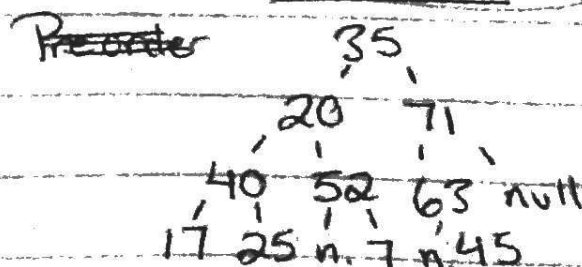 Preorder 35
20 71
40 52 63 null
17 25 n. 7 n 45